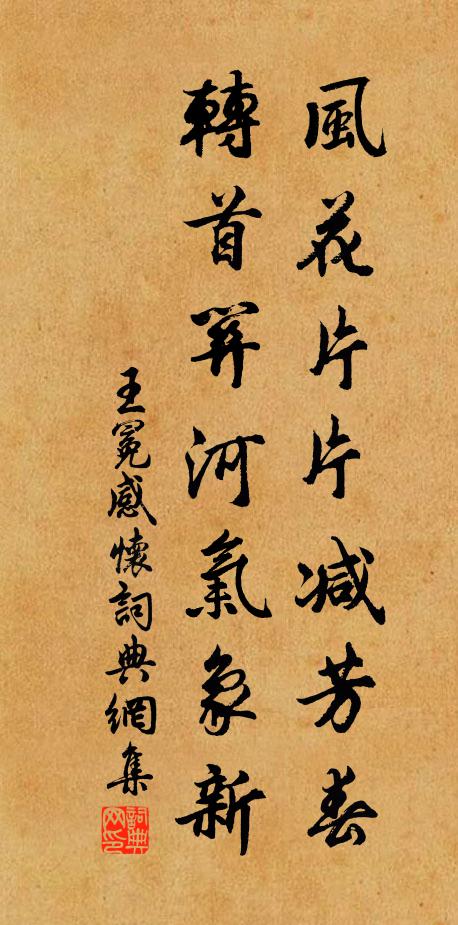 風花片片減芳春
轉首關河氣象新
王冕感懷詞典網集
詞典网印